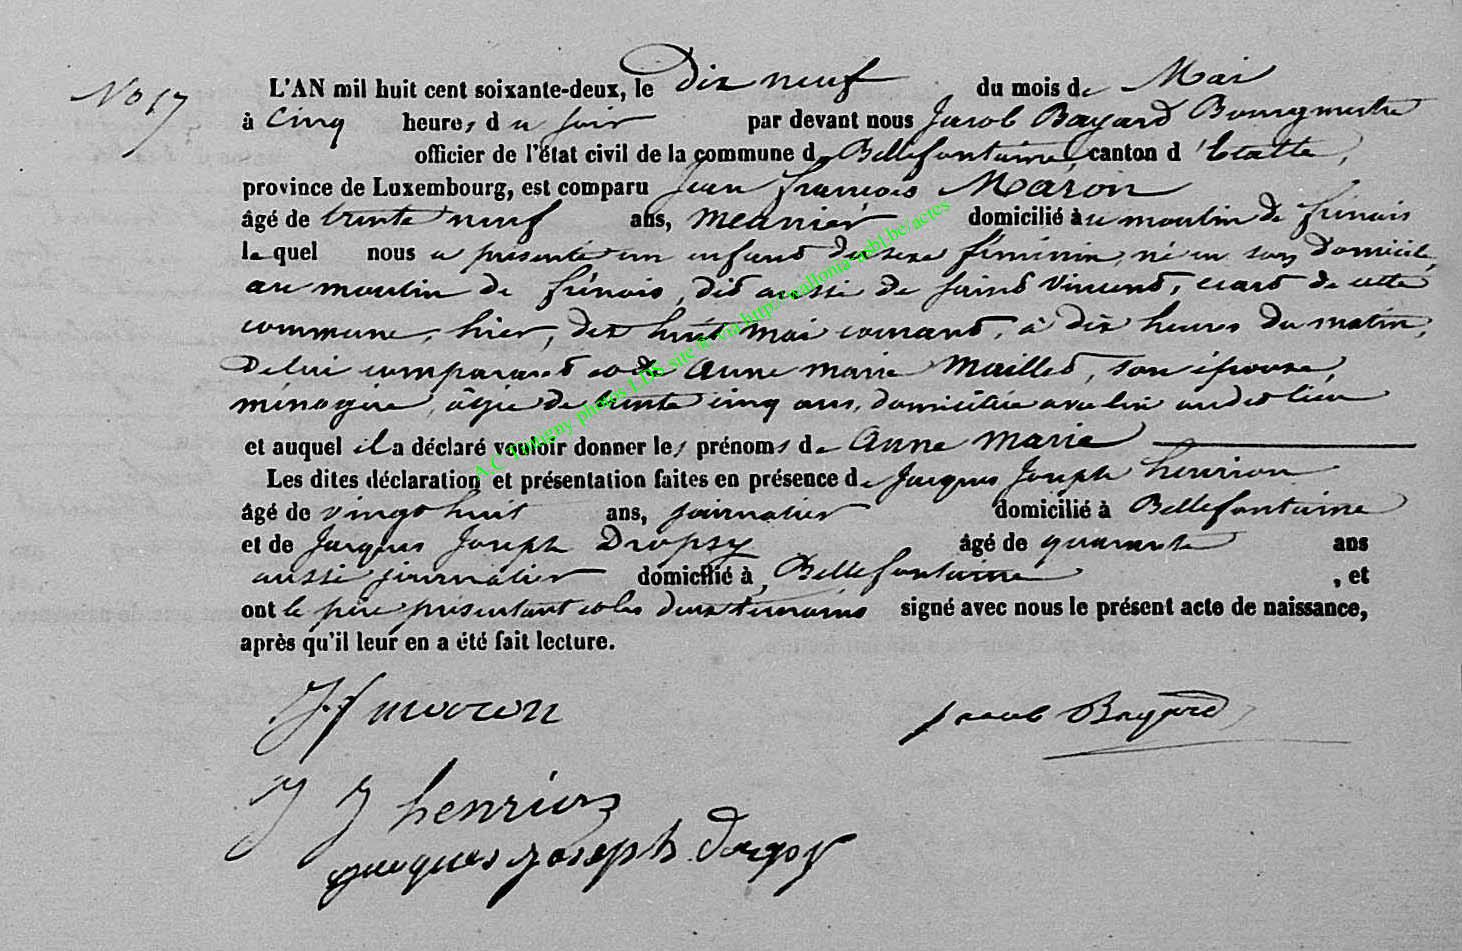 No 17
L'AN mil huit cent soixante-deux, le Dix neuf du mois de Mai
à Cinq heures du soir par devant nous Jacob Bayard Bourgmestre
officier de l'état civil de la commune de Bellefontaine, canton d'Etalle,
province de Luxembourg, est comparu Jean françois Maron
âgé de trente neuf ans, meunier domicilié au moulin de frénois
lequel nous a présenté un enfant du sexe féminin, né en son domicile,
au moulin de frénois, dit aussi de saint Vincent, écart de cette
commune, hier, dix huit mai courant, à dix heures du matin,
de lui comparant et de Anne marie Maillet, son épouse,
ménagère, âgée de trente cinq ans, domiciliée avec lui audit lieu
et auquel il a déclaré vouloir donner les prénoms de Anne Marie
Les dites déclaration et présentation faites en présence de Jacques Joseph henrion
âgé de vingt huit ans, journalier domicilié à Bellefontaine
et de Jacques Joseph Dropsy âgé de quarante ans
aussi journalier domicilié à Bellefontaine, et
ont le père présentant et les deux témoins signé avec nous le présent acte de naissance,
après qu'il leur en a été fait lecture.
Jf maron
Jacob Bayard
J J henrion
jacques joseph
A.C Tintigny photos LDS site & via http://wallonia-asbl.be/actes